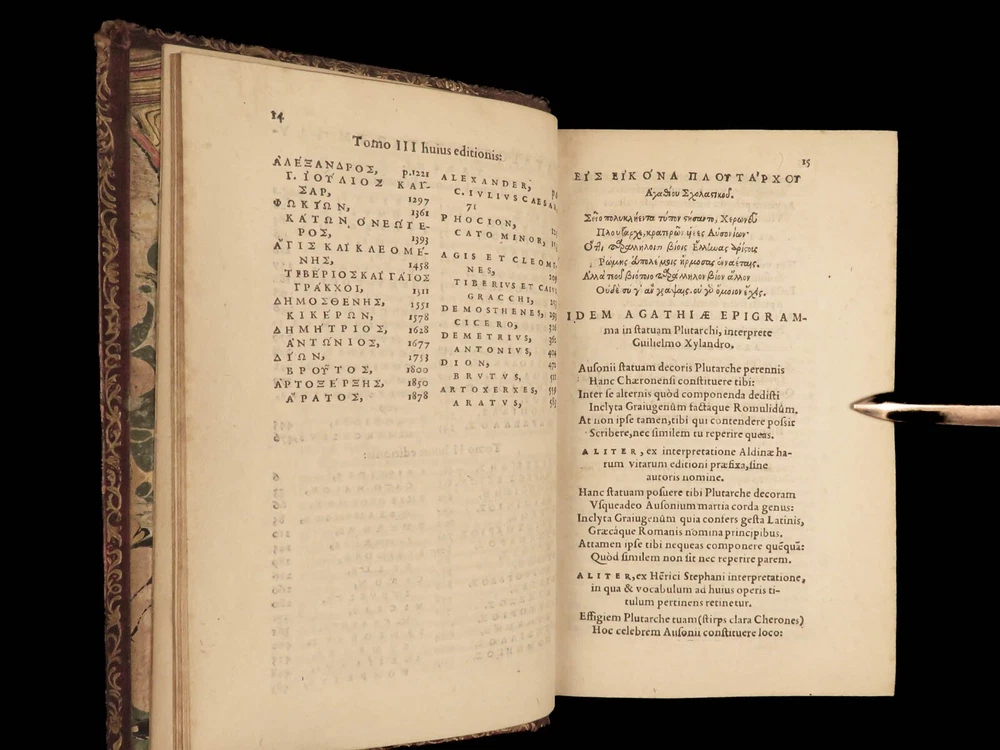 14
Tomo III huius editionis:
ἈΛΕΞΑΝΔΡΟΣ, p.1221
Γ. ἸΟΥΛΙΟΣ ΚΑΙ-
ΣΑΡ, 1297
ΦΩΚΙΩΝ, 1361
ΚΑΤΩΝ Ὁ ΝΕΩΤΕ-
ΡΟΣ, 1393
ἈΓΙΣ ΚΑῚ ΚΛΕΟΜΕ-
ΝΗΣ, 1458
ΤΙΒΕΡΙΟΣ ΚΑῚ ΓΑΪΟΣ
ΓΡΑΚΧΟΙ, 1511
ΔΗΜΟΣΘΕΝΗΣ, 1551
ΚΙΚΕΡΩΝ, 1578
ΔΗΜΗΤΡΙΟΣ, 1628
ἈΝΤΩΝΙΟΣ, 1677
ΔΙΩΝ, 1753
ΒΡΟΥΤΟΣ, 1800
ἈΡΤΟΞΕΡΞΗΣ, 1850
ἈΡΑΤΟΣ, 1878
ALEXANDER,
C. IVLIVS CAESA
71
PHOCION,
CATO MINOR,
AGIS ET CLEOM
NES,
TIBERIVS ET CAIVS
GRACCHI,
DEMOSTHENES,
CICERO,
DEMETRIVS,
ANTONIVS,
DION,
BRVTVS,
ARTOXERXES,
ARATVS,
15
ΕἸΣ ΕἸΚΟΝΑ ΠΛΟΥΤΑΡΧΟΥ
Ἀγαθίου Σχολαστικοῦ.
Σεῖο πολυκλήεντα τύπον στήσαντο, Χερωνεῦ
Πλούταρχε, κρατερῶν υἱέες Αὐσονίων·
Ὅττι παραλλήλοισι βίοις Ἕλληνας ἀρίστους
Ῥώμης εὐπολέμοις ἥρμοσας ἐνναέταις.
Ἀλλὰ τεοῦ βιότοιο παράλληλον βίον ἄλλον
Οὐδὲ σύ γ' ἂν γράψαις. οὐ γὰρ ὅμοιον ἔχεις.
IDEM AGATHIÆ EPIGRAM-
ma in ſtatuam Plutarchi, interprete
Guilielmo Xylandro,
Auſonii ſtatuam decoris Plutarche perennis
Hanc Chæronenſi conſtituere tibi:
Inter ſe alternis quòd componenda dediſti
Inclyta Graiugenûm factáque Romulidûm.
At non ipſe tamen, tibi qui contendere poſſit
Scribere, nec ſimilem tu reperire queas.
ALITER, ex interpretatione Aldinæ ha-
rum vitarum editioni præfixa, ſine
autoris nomine.
Hanc ſtatuam poſuere tibi Plutarche decoram
Vſqueadeo Auſonium martia corda genus:
Inclyta Graiugenûm quia confers geſta Latinis,
Græcáque Romanis nomina principibus.
Attamen ipſe tibi nequeas componere quēquã:
Quòd ſimilem non ſit nec reperire parem.
ALITER, ex Hērici Stephani interpretatione,
in qua & vocabulum ad huius operis ti-
tulum pertinens retinetur.
Effigiem Plutarche tuam (ſtirps clara Cherones)
Hoc celebrem Auſonii conſtituere loco: